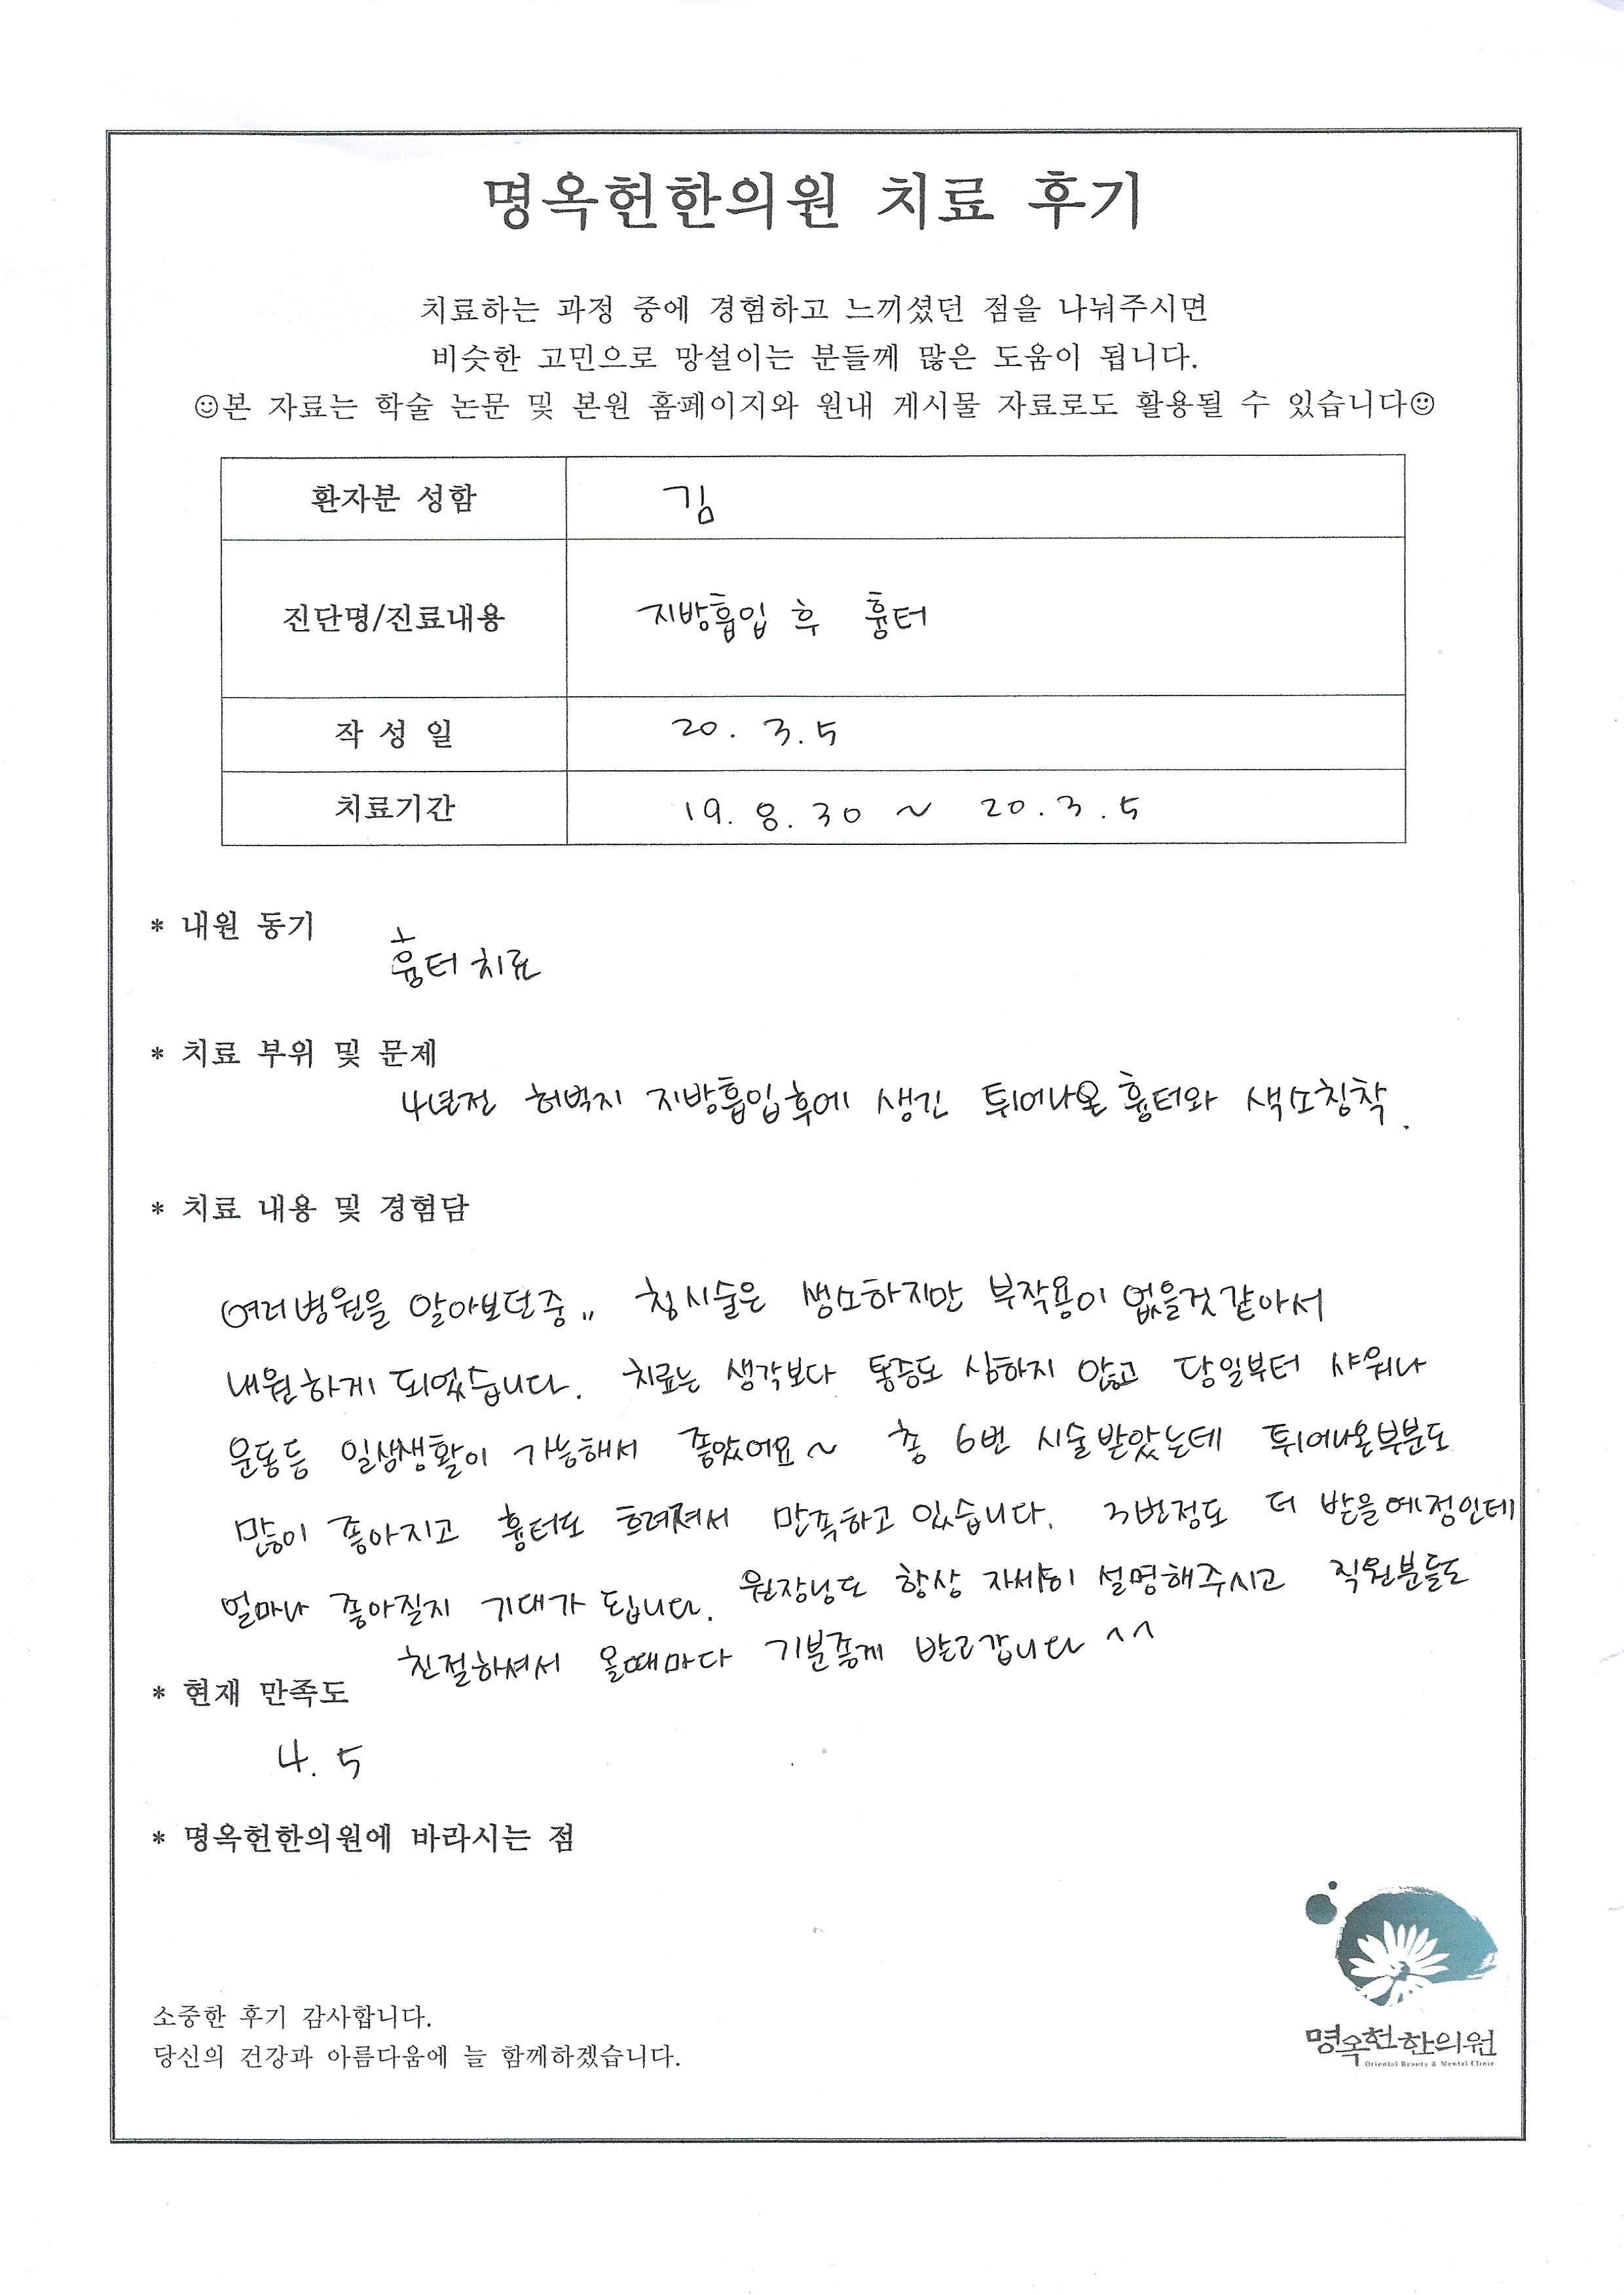 명옥헌한의원 치료 후기
치료하는 과정 중에 경험하고 느끼셨던 점을 나눠주시면
비슷한 고민으로 망설이는 분들께 많은 도움이 됩니다.
☺본 자료는 학술 논문 및 본원 홈페이지와 원내 게시물 자료로도 활용될 수 있습니다☺
환자분 성함 김
진단명/진료내용 지방흡입 후 흉터
작 성 일 20. 3. 5
치료기간 19. 8. 30 ~ 20. 3. 5
* 내원 동기
흉터 치료
* 치료 부위 및 문제
4년전 허벅지 지방흡입후에 생긴 튀어나온 흉터와 색소침착.
* 치료 내용 및 경험담
여러병원을 알아보던중,, 침시술은 생소하지만 부작용이 없을것 같아서
내원하게 되었습니다. 치료는 생각보다 통증도 심하지 않고 당일부터 샤워나
운동등 일상생활이 가능해서 좋았어요~ 총 6번 시술받았는데 튀어나온부분도
많이 좋아지고 흉터도 흐려져서 만족하고 있습니다. 3번정도 더 받을예정인데
얼마나 좋아질지 기대가 됩니다. 원장님도 항상 자세히 설명해주시고 직원분들도
친절하셔서 올때마다 기분좋게 받고갑니다 ^^
* 현재 만족도
4. 5
* 명옥헌한의원에 바라시는 점
소중한 후기 감사합니다.
당신의 건강과 아름다움에 늘 함께하겠습니다.
명옥헌한의원
Oriental Beauty & Mental Clinic